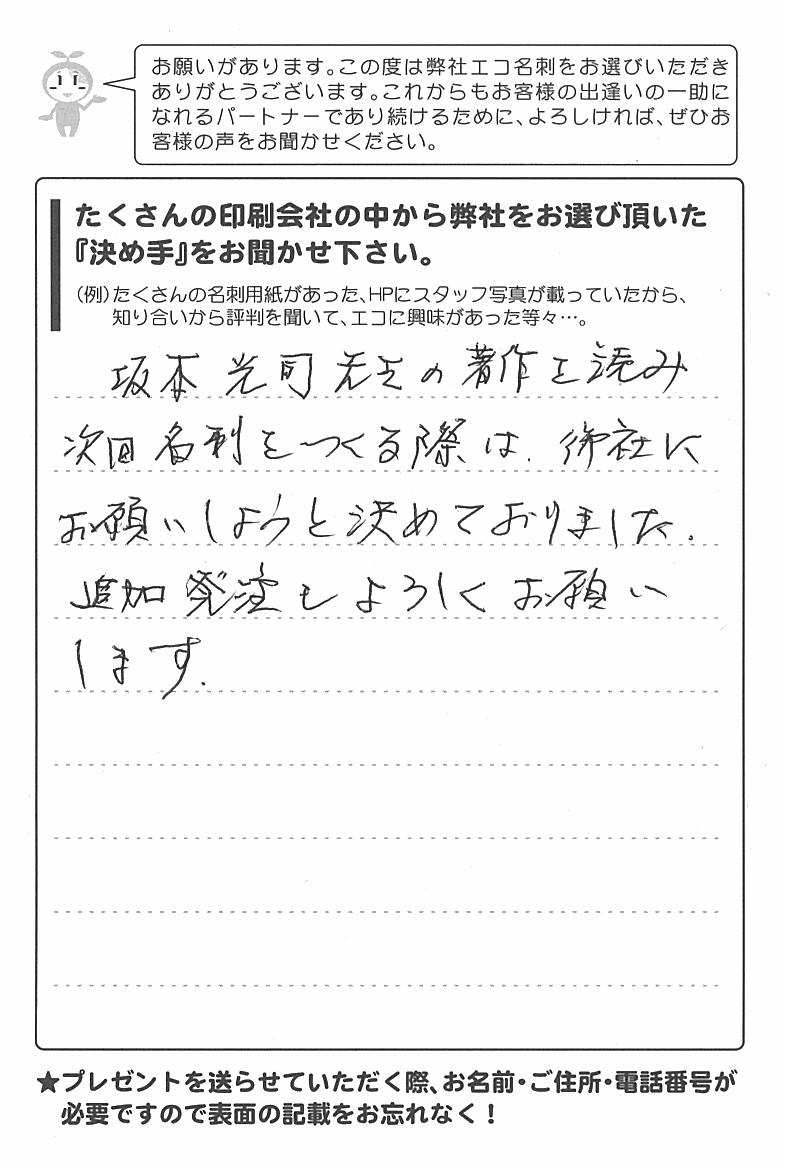 お願いがあります。この度は弊社エコ名刺をお選びいただき
ありがとうございます。これからもお客様の出逢いの一助に
なれるパートナーであり続けるために、よろしければ、ぜひお
客様の声をお聞かせください。
たくさんの印刷会社の中から弊社をお選び頂いた
『決め手』をお聞かせ下さい。
(例)たくさんの名刺用紙があった、HPにスタッフ写真が載っていたから、
知り合いから評判を聞いて、エコに興味があった等々…。
坂本光司先生の著作を読み
次回名刺をつくる際は、御社に
お願いしようと決めておりました.
追加発注もよろしくお願い
します.
★プレゼントを送らせていただく際、お名前・ご住所・電話番号が
必要ですので表面の記載をお忘れなく！